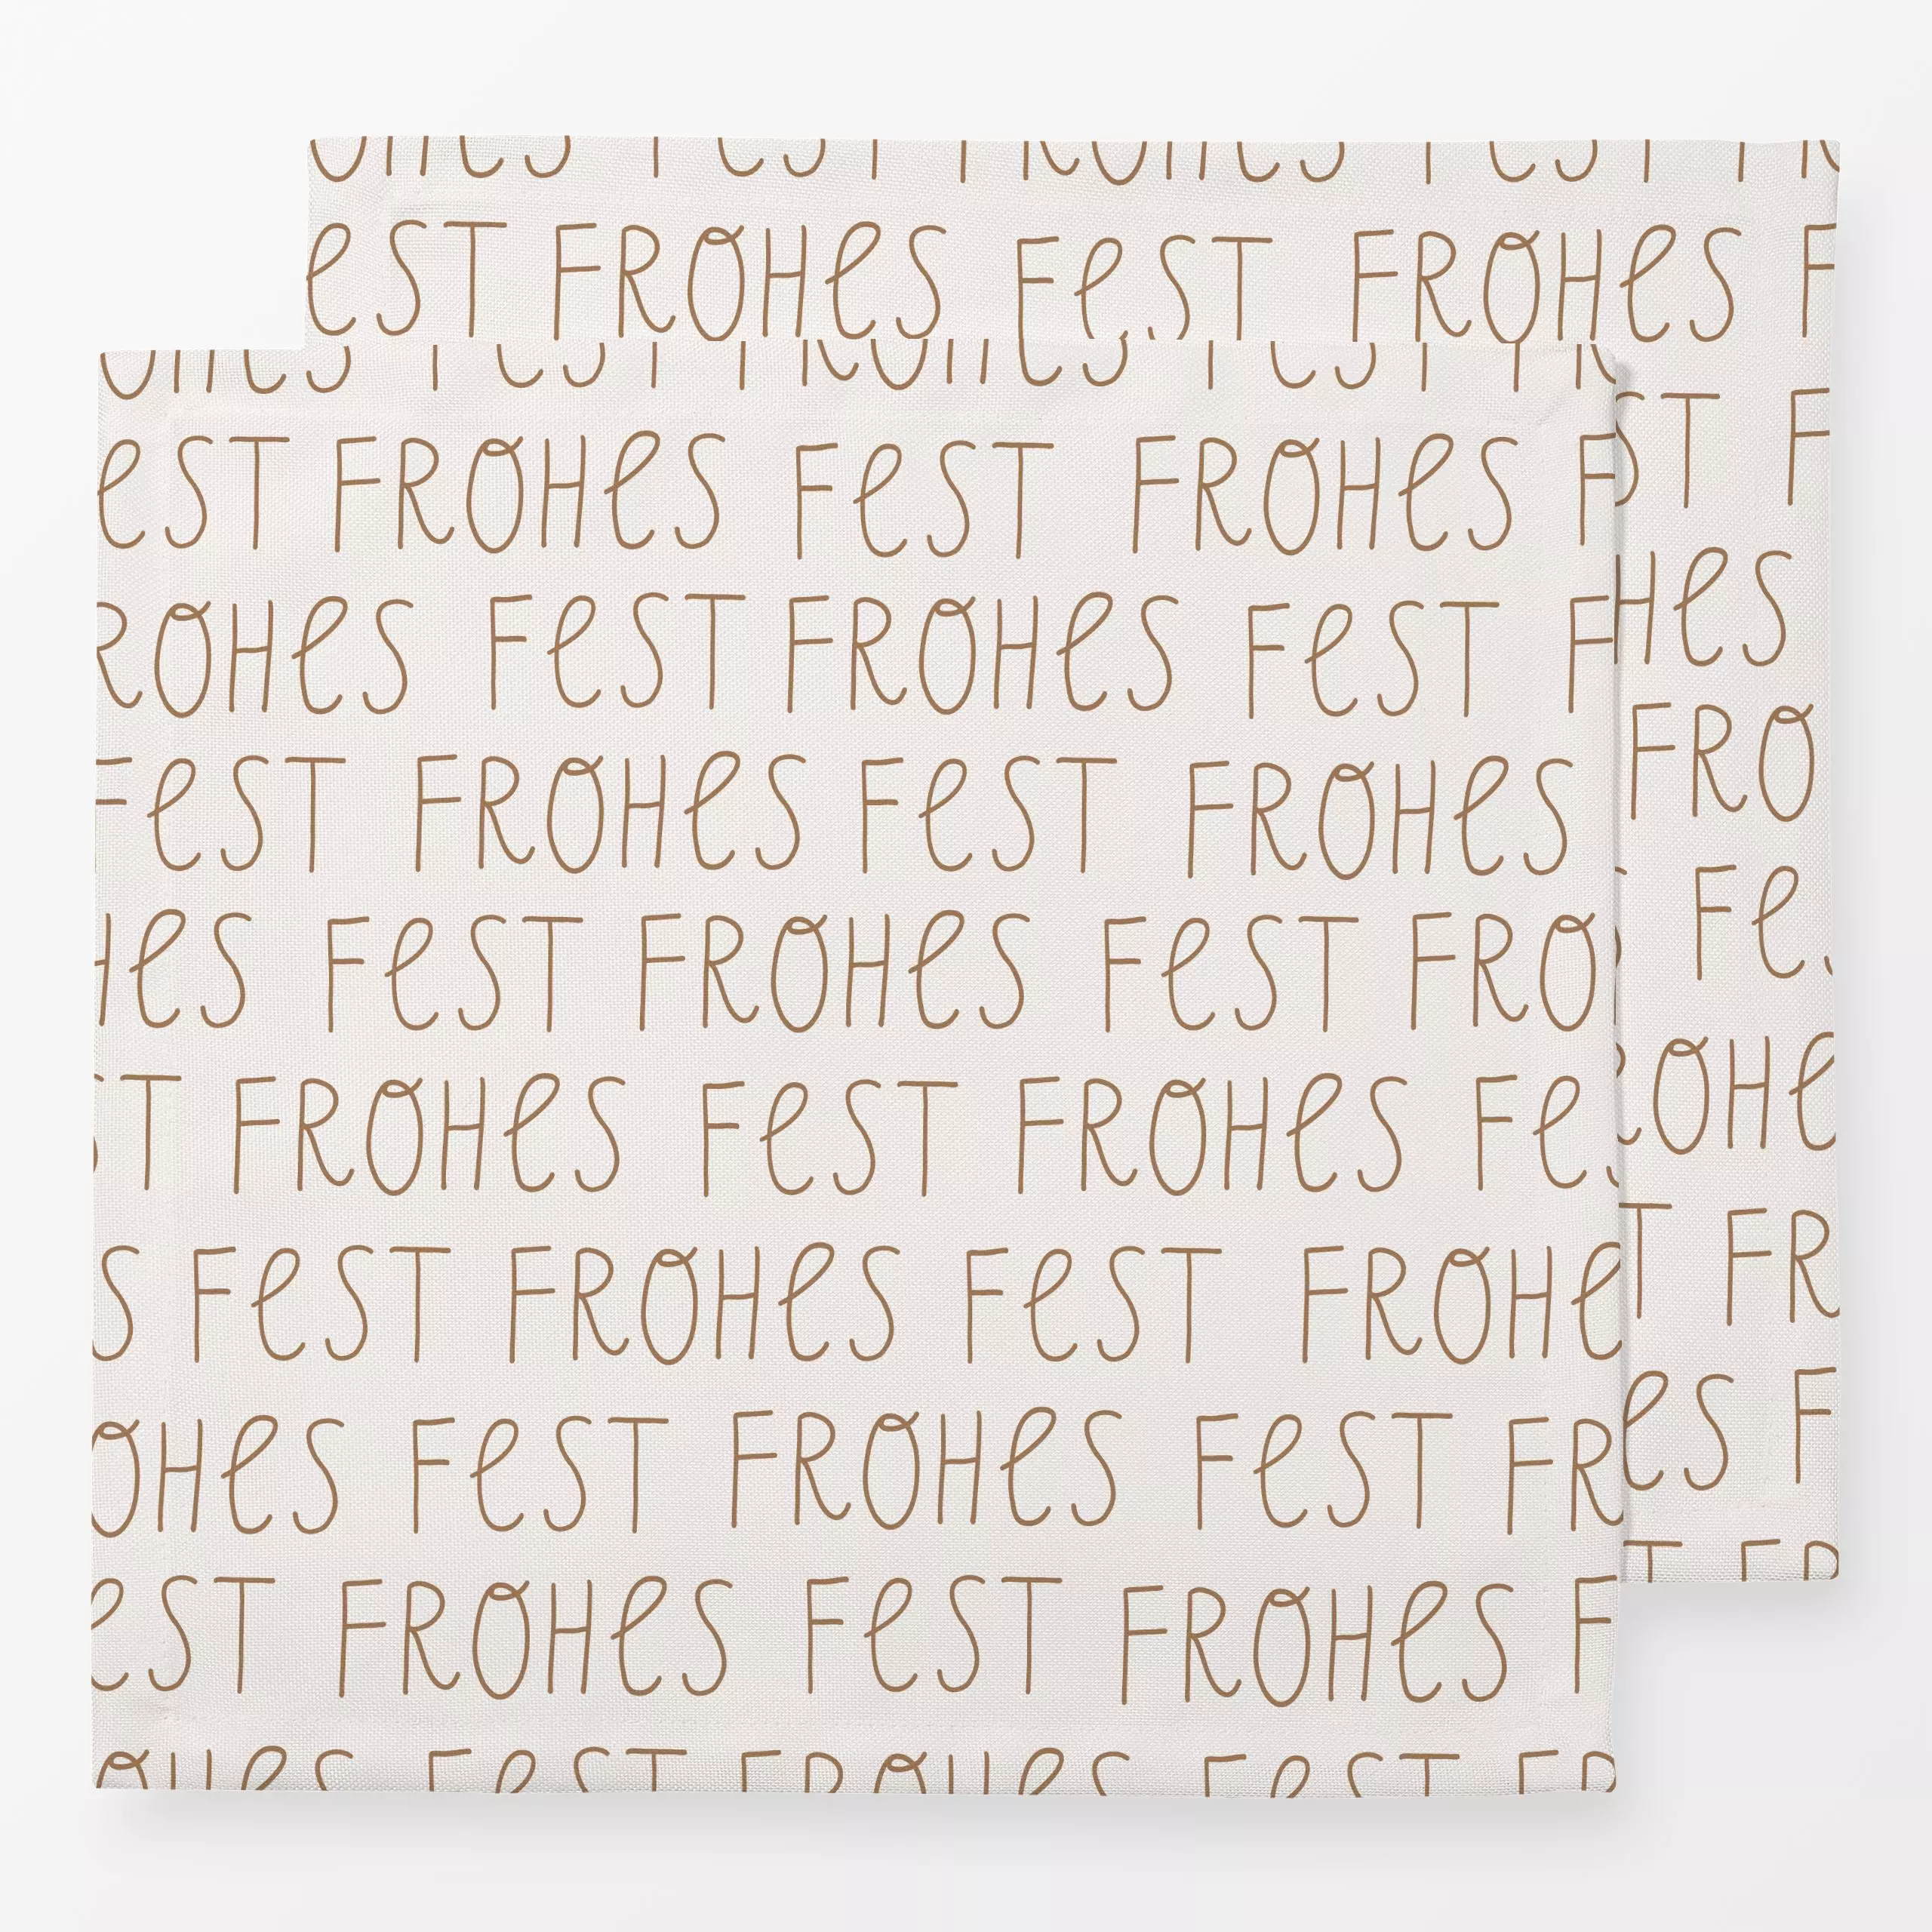 EST FROHES FEST FROHES F
EST FROHES FEST FROHES F
ST F
ROHES FEST FROHES FEST F
HES
FEST FROHES FEST FROHES
FRO
HES FEST FROHES FEST FRO
FE
ST FROHES FEST FROHES FES
OHE
S FEST FROHES FEST FROHE
T FR
OHES FEST FROHES FEST FR
ES F
EST FROHES FEST FROHES F
OHES FEST FROHES FEST FR